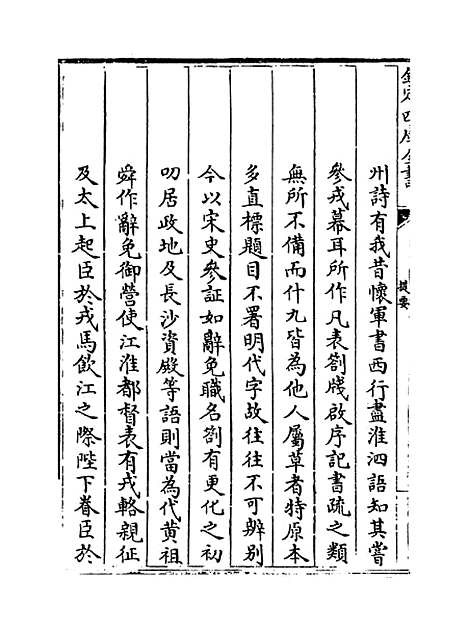 欽定四庫全書
提要
州詩有我昔懷軍書西行盡淮泗語知其嘗
參戎幕耳所作凡表劄牋啟序記書疏之類
無所不備而什九皆為他人屬草者特原本
多直標題目不署明代字故往往不可辨別
今以宋史參証如辭免職名劄有更化之初
叨居政地及長沙資殿等語則當為代黄祖
舜作辭免御營使江淮都督表有戎輅親征
及太上起臣於戎馬飲江之際陛下眷臣於